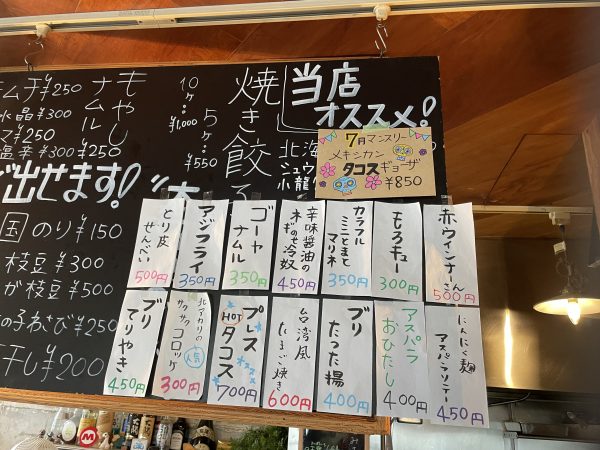 当店
オススメ!
焼き餃子
10ヶ…¥1,000
5ヶ…¥550
もやし
ナムル
¥250
¥250
水晶¥300
¥250
塩辛¥300
出せます!
国のり¥150
枝豆¥300
が枝豆¥500
の子わさび¥250
干し¥200
7月マンスリー
メキシカン
タコスギョーザ
¥850
赤ウィンナーさん
500円
もろキュー
300円
カラフル
ミニとまと
マリネ
350円
辛味醤油の
ネギのせ冷奴
450円
ゴーヤ
ナムル
350円
アジフライ
350円
とり皮
せんべい
500円
にんにく麹
アスパラソテー
450円
アスパラ
おひたし
400円
ブリ
たつた揚
400円
台湾風
600円
プレス
HOT
タコス
オススメ
700円
北アカリの
サクサク
コロッケ
人気
300円
ブリ
てりやき
450円